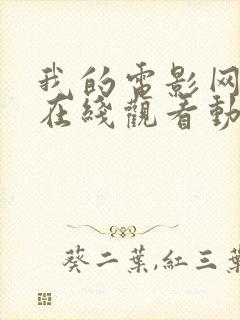 我的電影网
在綫觀看動
葵二葉,紅三葉